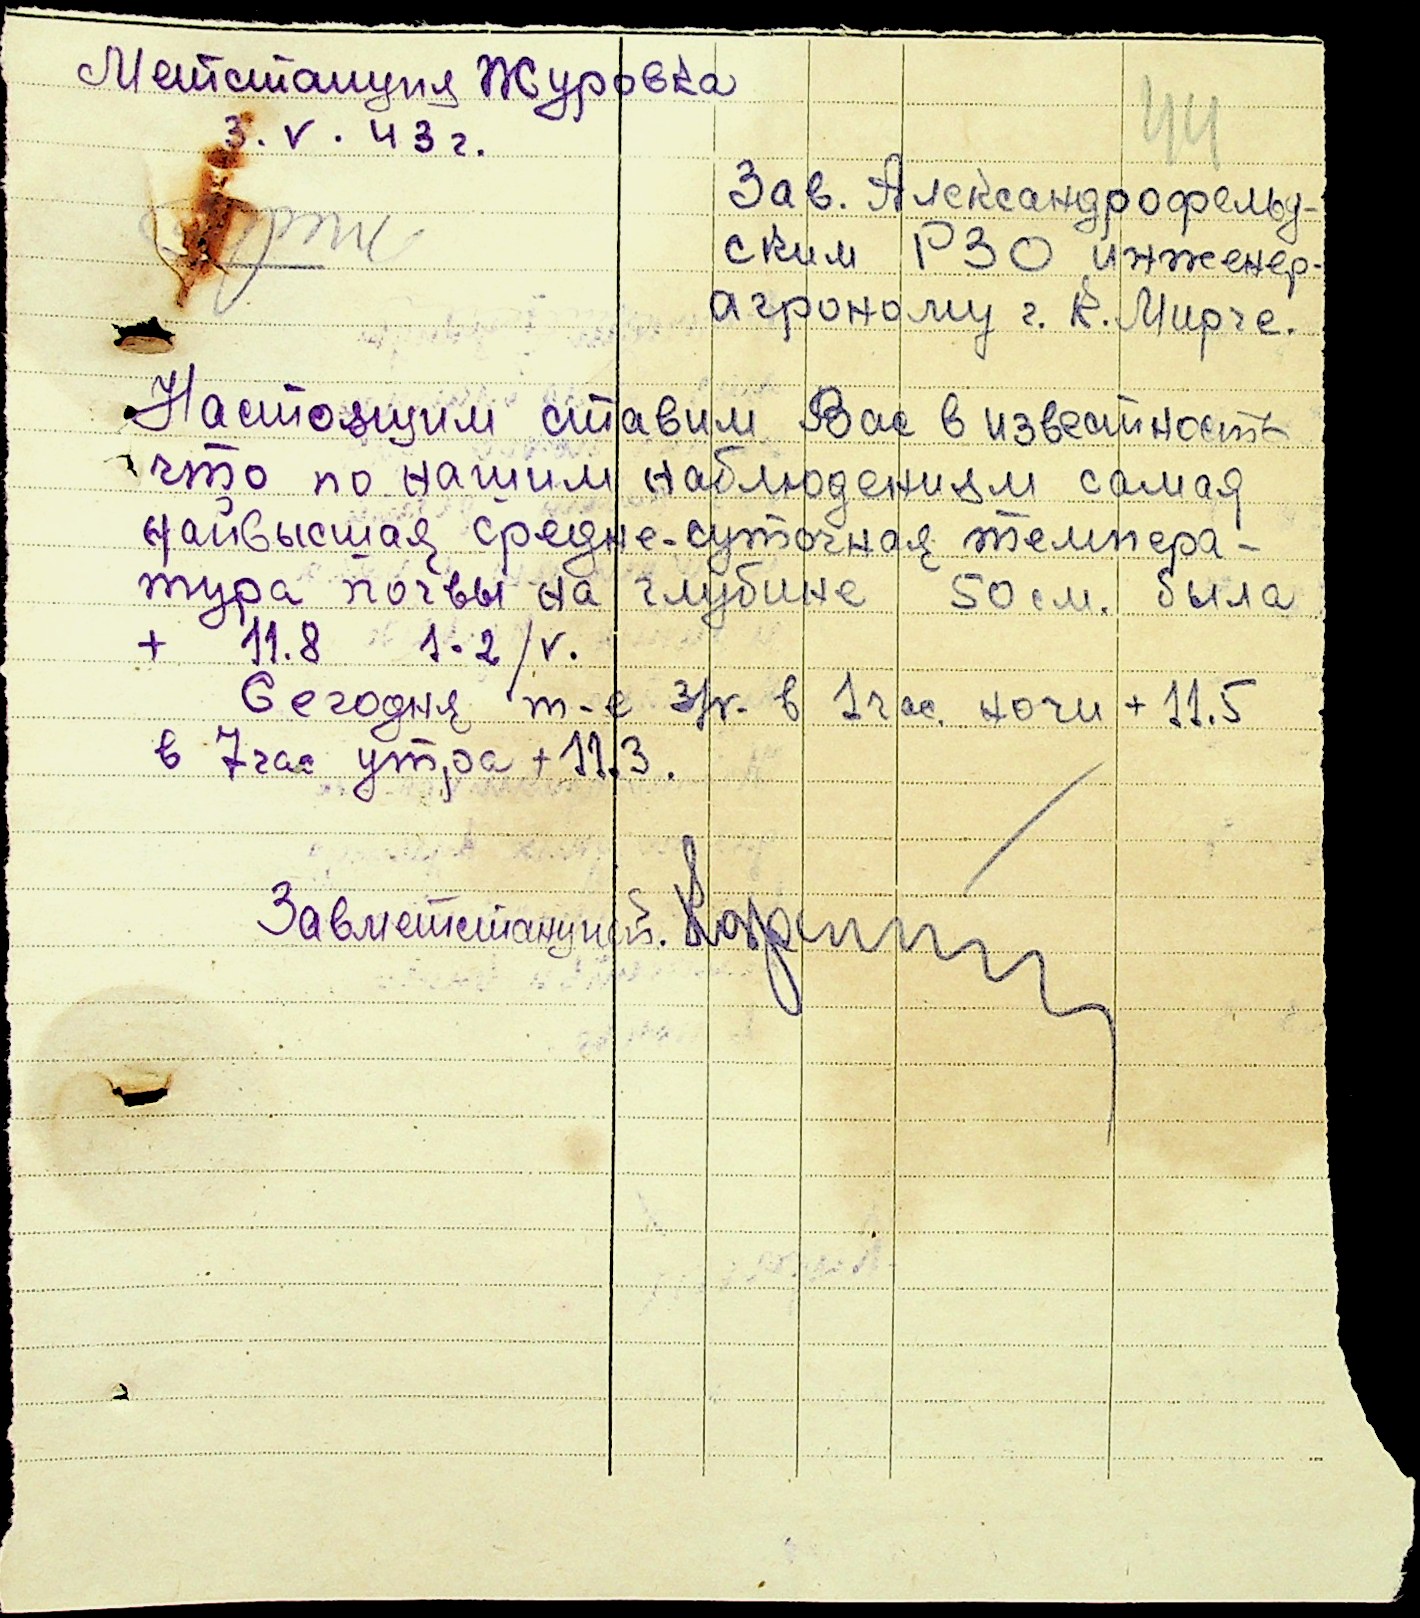 Метстанция Журовка
3. V. 43 г.
44
Зав. Александрофельд-
ским РЗО инженер-
агроному г. К. Мирче.
Настоящим ставим Вас в известность
что по нашим наблюдениям самая
найвысшая средне-суточная темпера-
тура почвы на глубине 50 см. была
+ 11.8 1-2/V.
Сегодня т-е 3/V- в 1 час. ночи + 11.5
в 7 час утра + 11.3.
Завметстанцией.